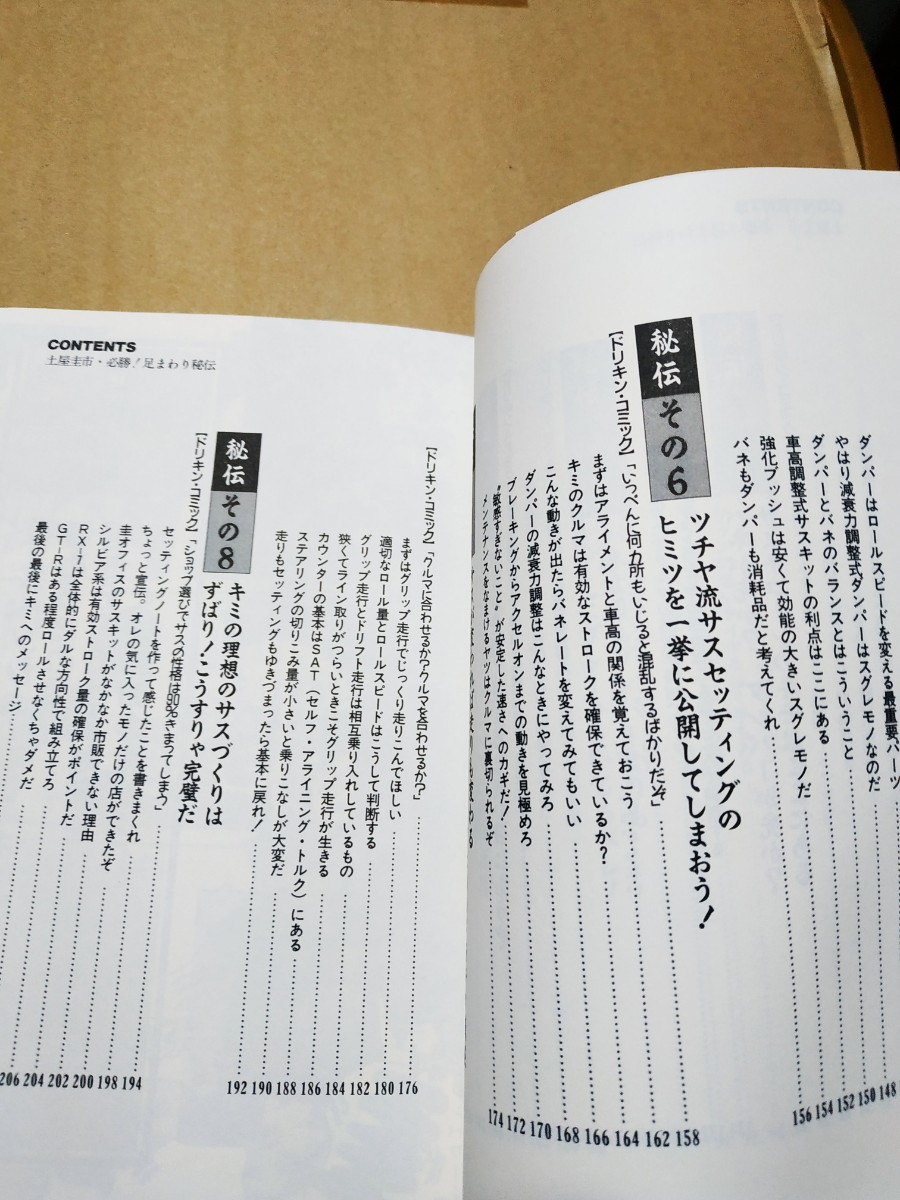 ダンパーはロールスピードを変える最重要パーツ
やはり減衰力調整式ダンパーはスグレモノなのだ 148
ダンパーとバネのバランスとはこういうこと 150
車高調整式サスキットの利点はここにある 152
強化ブッシュは安くて効能の大きいスグレモノだ 154
バネもダンパーも消耗品だと考えてくれ 156
秘伝その6
ツチヤ流サスセッティングの
ヒミツを一挙に公開してしまおう!
【ドリキン・コミック】「いっぺんに何カ所もいじると混乱するばかりだぞ」 158
まずはアライメントと車高の関係を覚えておこう 162
キミのクルマは有効なストロークを確保できているか? 164
こんな動きが出たらバネレートを変えてみてもいい 166
ダンパーの減衰力調整はこんなときにやってみろ 168
ブレーキングからアクセルオンまでの動きを見極めろ 170
“敏感すぎないこと”が安定した速さへのカギだ! 172
メンテナンスをなまけるヤツはクルマに裏切られるぞ 174
CONTENTS
土屋圭市・必勝!足まわり秘伝
【ドリキン・コミック】「クルマに合わせるか?クルマを合わせるか?」 176
まずはグリップ走行でじっくり走りこんでほしい 180
適切なロール量とロールスピードはこうして判断する 182
グリップ走行とドリフト走行は相互乗り入れしているもの 184
狭くてライン取りがつらいときこそグリップ走行が生きる 186
カウンターの基本はSAT(セルフ・アライニング・トルク)にある 188
ステアリングの切りこみ量が小さいと乗りこなしが大変だ 190
走りもセッティングもゆきづまったら基本に戻れ! 192
秘伝その8
キミの理想のサスづくりは
ずばり!こうすりゃ完璧だ
【ドリキン・コミック】「ショップ選びでサスの性格は90%きまってしまう」 194
セッティングノートを作って感じたことを書きまくれ 198
ちょっと宣伝。オレの気に入ったモノだけの店ができたぞ 200
圭オフィスのサスキットがなかなか市販できない理由 202
シルビア系は有効ストローク量の確保がポイントだ 204
RX-7は全体的にダルな方向性で組み立てろ 206
GT-Rはある程度ロールさせなくちゃダメだ
最後の最後にキミへのメッセージ